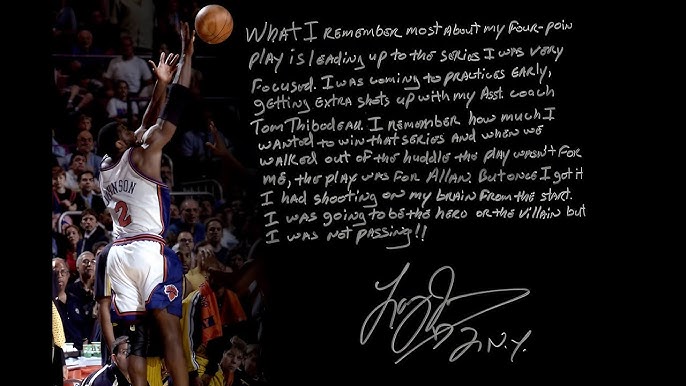 WHAT I REMEMBER MOST ABOUT MY FOUR-POIN
PLAY IS LEADING UP TO THE SERIES I WAS VERY
FOCUSED. I WAS COMING TO PRACTICES EARLY,
GETTING EXTRA SHOTS UP WITH MY ASST. COACH
TOM THIBODEAU. I REMEMBER HOW MUCH I
WANTED TO WIN THAT SERIES AND WHEN WE
WALKED OUT OF THE HUDDLE THE PLAY WASN'T FOR
ME, THE PLAY WAS FOR ALLAN. BUT ONCE I GOT IT
I HAD SHOOTING ON MY BRAIN FROM THE START.
I WAS GOING TO BE THE HERO OR THE VILLAIN BUT
I WAS NOT PASSING!!
HNSON
2
2 N.Y.